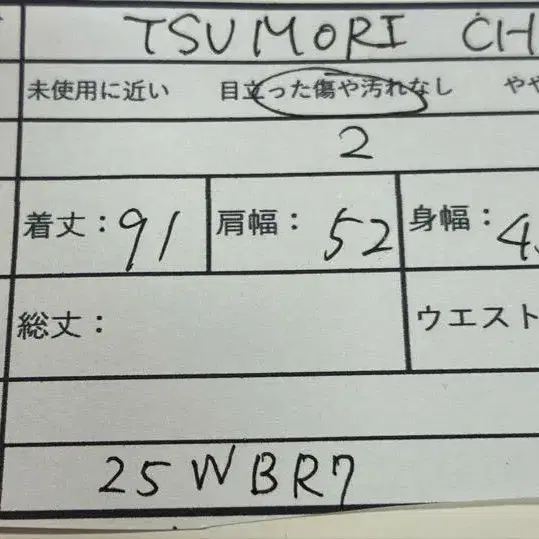 TSUMORI CH
未使用に近い 目立った傷や汚れなし やや
2
着丈：91 肩幅：52 身幅：4
総丈： ウエスト
25WBR7